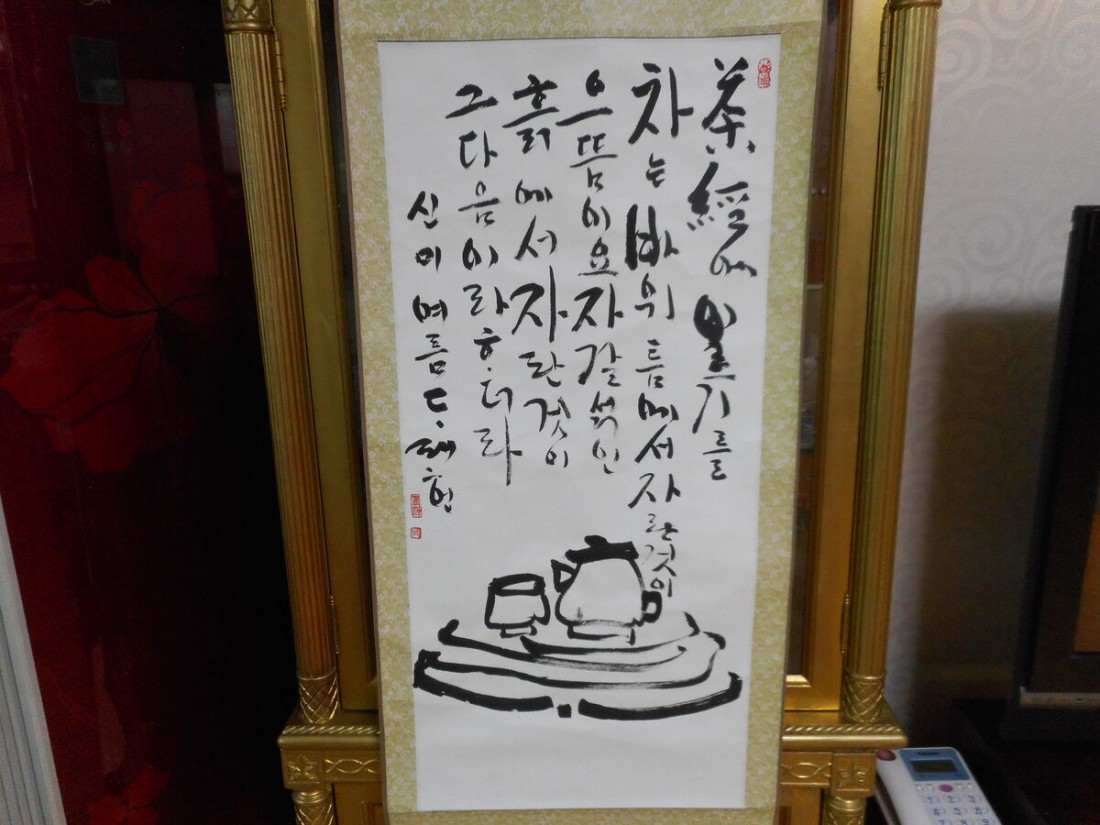 茶經에 이르기를
차는 바위 틈에서 자란 것이
으뜸이요 자갈 섞인
흙에서 자란 것이
그 다음이라 하더라
신이 여름